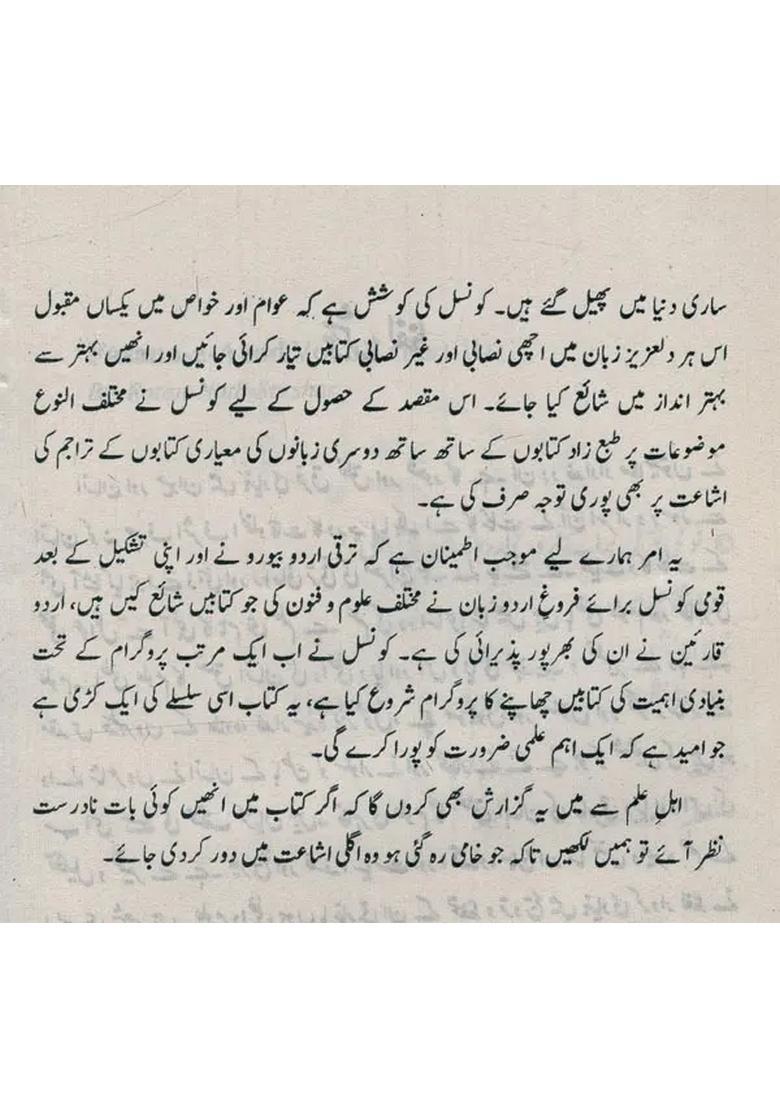 ساری دنیا میں پھیل گئے ہیں۔ کونسل کی کوشش ہے کہ عوام اور خواص میں یکساں مقبول
اس ہر دلعزیز زبان میں اچھی نصابی اور غیر نصابی کتابیں تیار کرائی جائیں اور انھیں بہتر سے
بہتر انداز میں شائع کیا جائے۔ اس مقصد کے حصول کے لیے کونسل نے مختلف النوع
موضوعات پر طبع زاد کتابوں کے ساتھ ساتھ دوسری زبانوں کی معیاری کتابوں کے تراجم کی
اشاعت پر بھی پوری توجہ صرف کی ہے۔
یہ امر ہمارے لیے موجب اطمینان ہے کہ ترقی اردو بیورو نے اور اپنی تشکیل کے بعد
قومی کونسل برائے فروغِ اردو زبان نے مختلف علوم و فنون کی جو کتابیں شائع کیں ہیں، اردو
قارئین نے ان کی بھرپور پذیرائی کی ہے۔ کونسل نے اب ایک مرتب پروگرام کے تحت
بنیادی اہمیت کی کتابیں چھاپنے کا پروگرام شروع کیا ہے، یہ کتاب اسی سلسلے کی ایک کڑی ہے
جو امید ہے کہ ایک اہم علمی ضرورت کو پورا کرے گی۔
اہلِ علم سے میں یہ گزارش بھی کروں گا کہ اگر کتاب میں انھیں کوئی بات نادرست
نظر آئے تو ہمیں لکھیں تاکہ جو خامی رہ گئی ہو وہ اگلی اشاعت میں دور کردی جائے۔